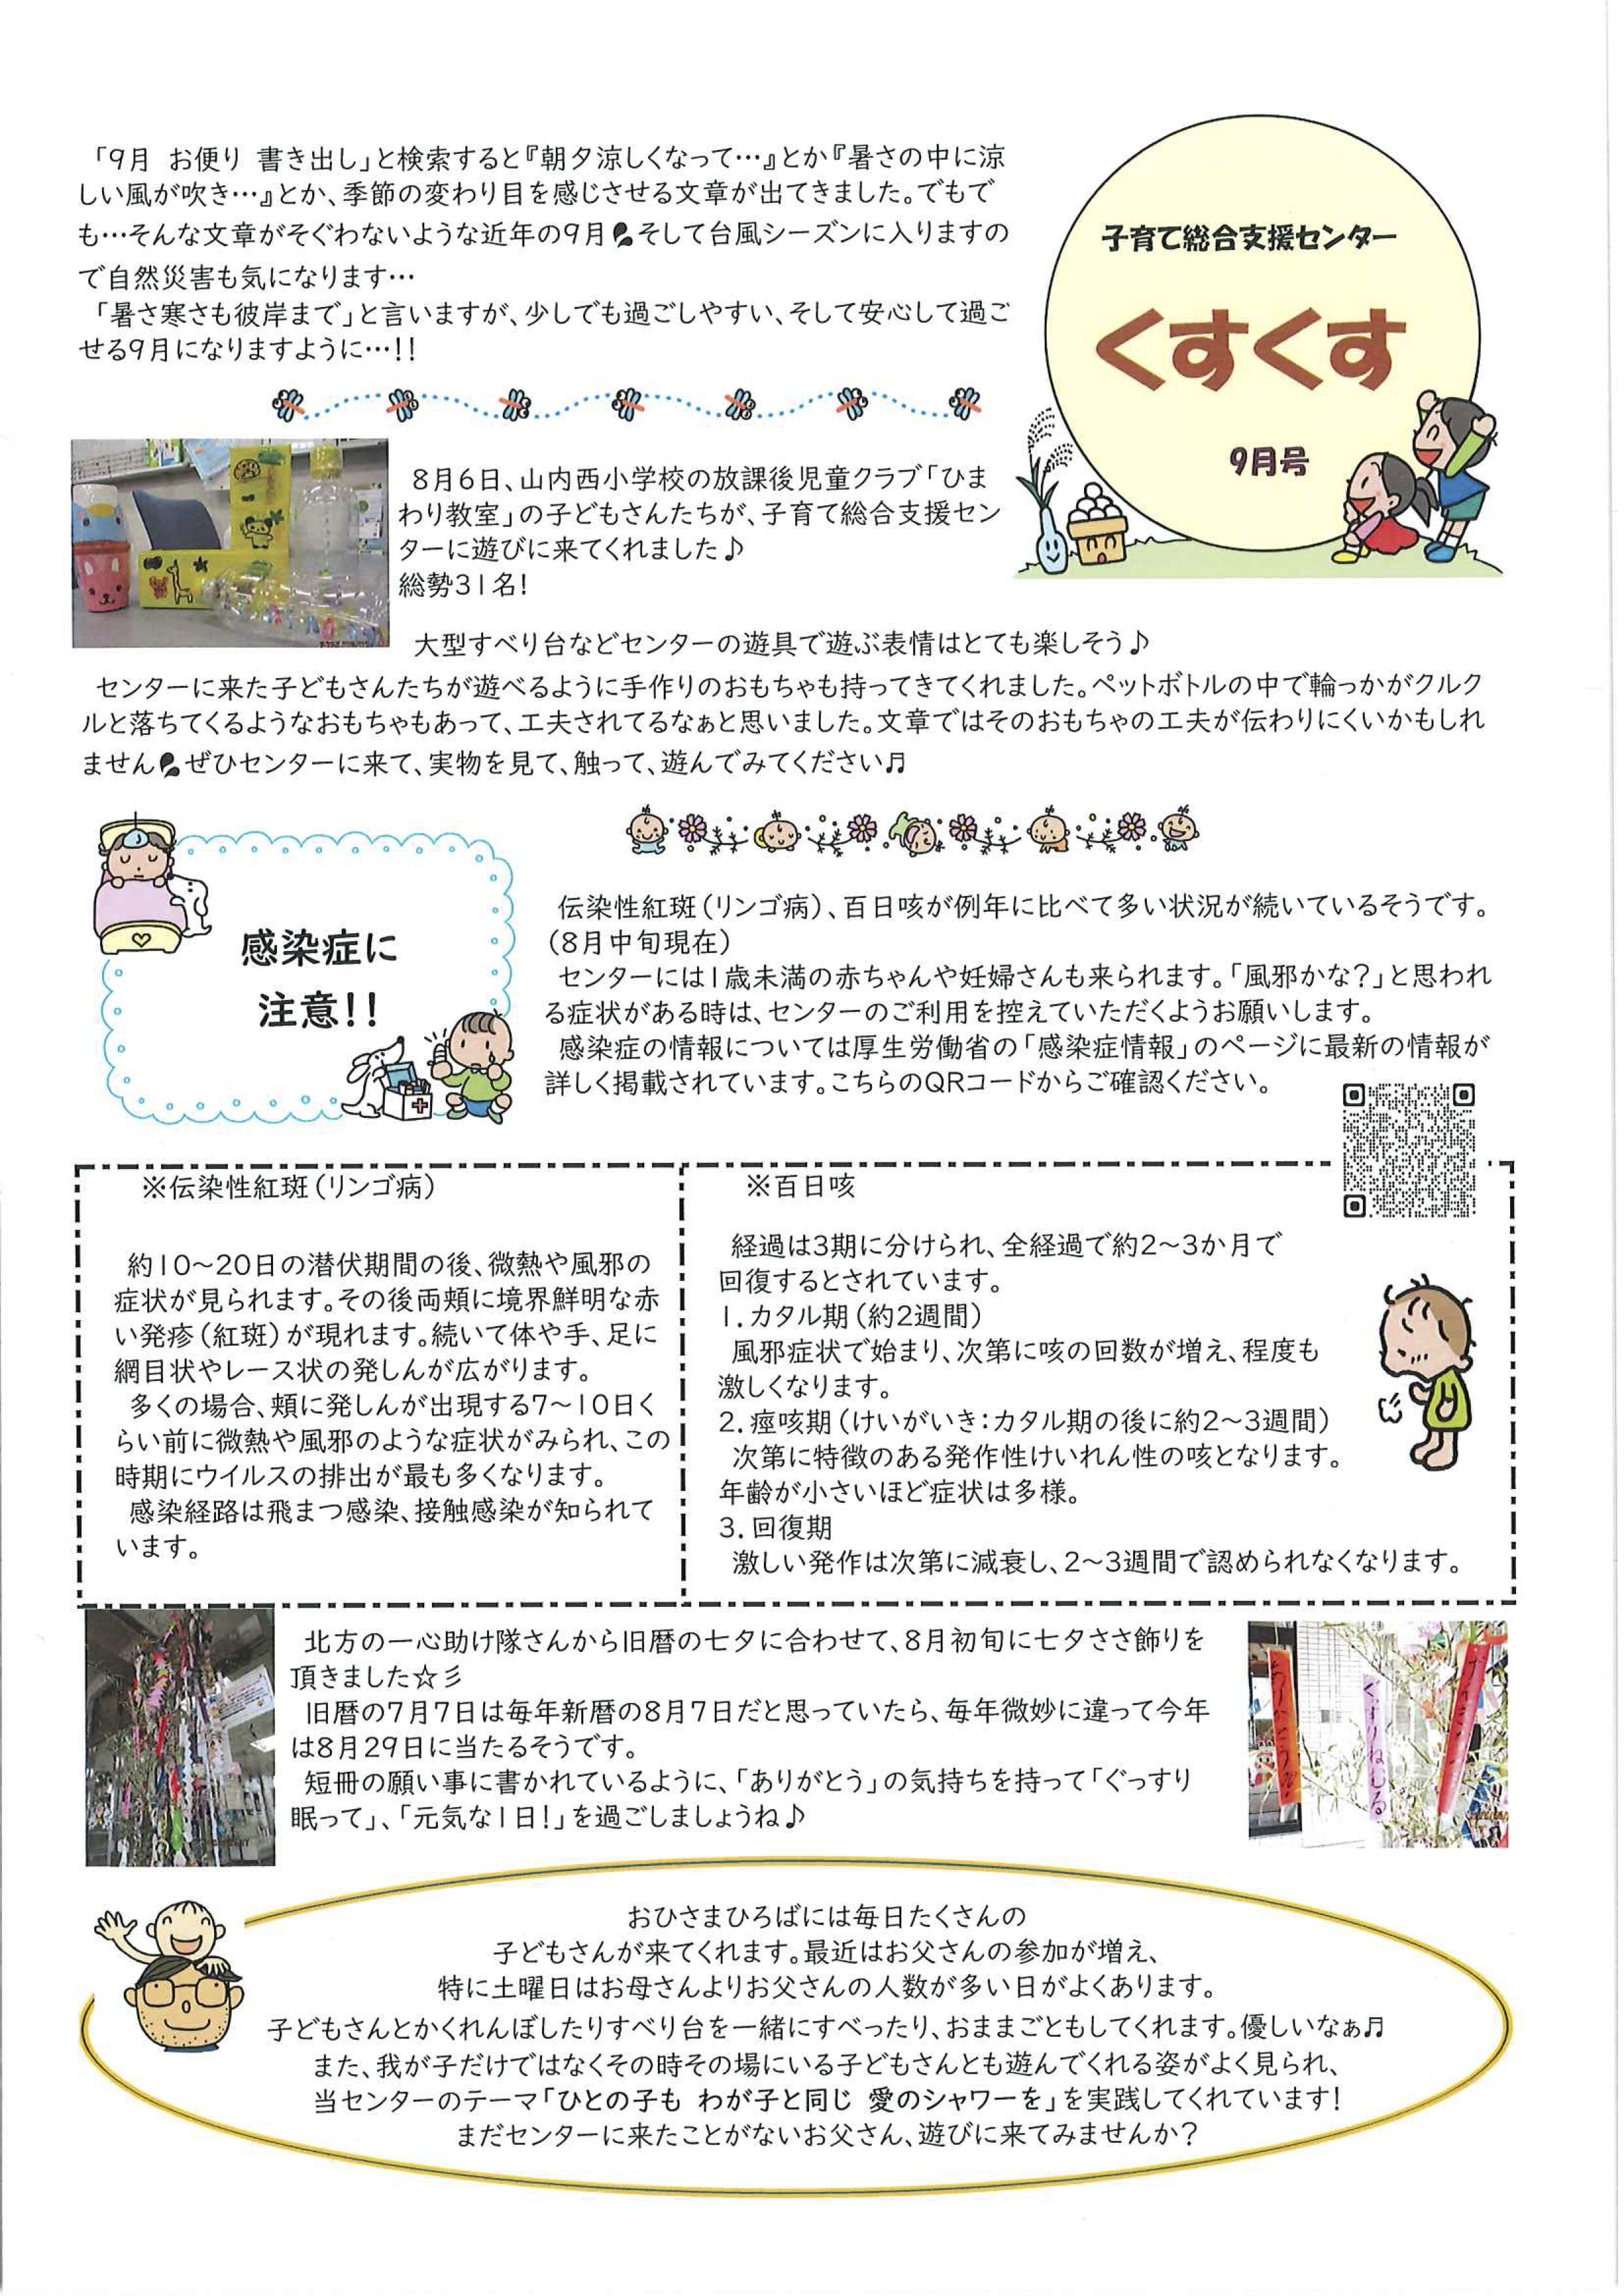 「9月 お便り 書き出し」と検索すると『朝夕涼しくなって…』とか『暑さの中に涼
しい風が吹き…』とか、季節の変わり目を感じさせる文章が出てきました。でもで
も…そんな文章がそぐわないような近年の9月 そして台風シーズンに入りますの
で自然災害も気になります…
「暑さ寒さも彼岸まで」と言いますが、少しでも過ごしやすい、そして安心して過ご
せる9月になりますように…!!
子育て総合支援センター
くすくす
9月号
8月6日、山内西小学校の放課後児童クラブ「ひま
わり教室」の子どもさんたちが、子育て総合支援セン
ターに遊びに来てくれました♪
総勢31名!
大型すべり台などセンターの遊具で遊ぶ表情はとても楽しそう♪
センターに来た子どもさんたちが遊べるように手作りのおもちゃも持ってきてくれました。ペットボトルの中で輪っかがクルク
ルと落ちてくるようなおもちゃもあって、工夫されてるなぁと思いました。文章ではそのおもちゃの工夫が伝わりにくいかもしれ
ません ぜひセンターに来て、実物を見て、触って、遊んでみてください♬
感染症に
注意!!
伝染性紅斑(リンゴ病)、百日咳が例年に比べて多い状況が続いているそうです。
(8月中旬現在)
センターには1歳未満の赤ちゃんや妊婦さんも来られます。「風邪かな?」と思われ
る症状がある時は、センターのご利用を控えていただくようお願いします。
感染症の情報については厚生労働省の「感染症情報」のページに最新の情報が
詳しく掲載されています。こちらのQRコードからご確認ください。
※伝染性紅斑(リンゴ病)
約10~20日の潜伏期間の後、微熱や風邪の
症状が見られます。その後両頬に境界鮮明な赤
い発疹(紅斑)が現れます。続いて体や手、足に
網目状やレース状の発しんが広がります。
多くの場合、頬に発しんが出現する7~10日く
らい前に微熱や風邪のような症状がみられ、この
時期にウイルスの排出が最も多くなります。
感染経路は飛まつ感染、接触感染が知られて
います。
※百日咳
経過は3期に分けられ、全経過で約2~3か月で
回復するとされています。
1.カタル期(約2週間)
風邪症状で始まり、次第に咳の回数が増え、程度も
激しくなります。
2.痙咳期(けいがいき:カタル期の後に約2~3週間)
次第に特徴のある発作性けいれん性の咳となります。
年齢が小さいほど症状は多様。
3.回復期
激しい発作は次第に減衰し、2~3週間で認められなくなります。
北方の一心助け隊さんから旧暦の七夕に合わせて、8月初旬に七夕ささ飾りを
頂きました☆彡
旧暦の7月7日は毎年新暦の8月7日だと思っていたら、毎年微妙に違って今年
は8月29日に当たるそうです。
短冊の願い事に書かれているように、「ありがとう」の気持ちを持って「ぐっすり
眠って」、「元気な1日!」を過ごしましょうね♪
おひさまひろばには毎日たくさんの
子どもさんが来てくれます。最近はお父さんの参加が増え、
特に土曜日はお母さんよりお父さんの人数が多い日がよくあります。
子どもさんとかくれんぼしたりすべり台を一緒にすべったり、おままごともしてくれます。優しいなぁ♬
また、我が子だけではなくその時その場にいる子どもさんとも遊んでくれる姿がよく見られ、
当センターのテーマ「ひとの子も わが子と同じ 愛のシャワーを」を実践してくれています!
まだセンターに来たことがないお父さん、遊びに来てみませんか?